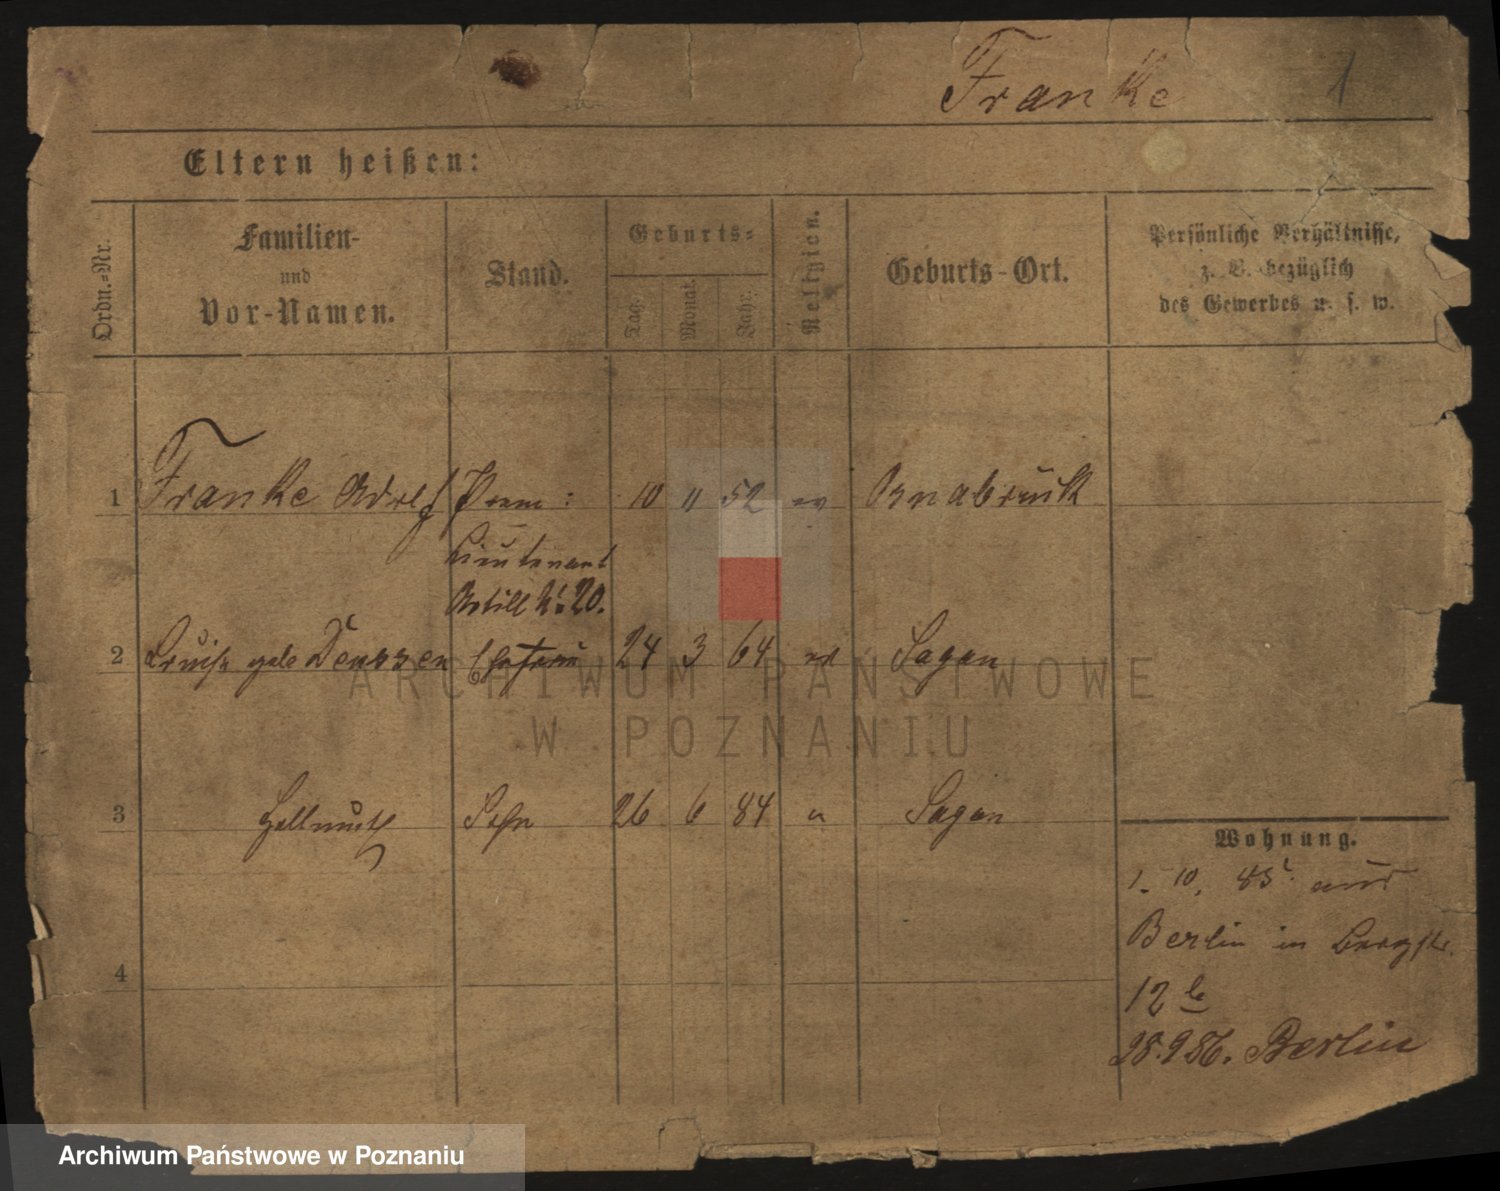 Franke 1
Eltern heißen:
Ordn.-Nr.
Familien-
und
Vor-Namen.
Stand.
Geburts-
Tag.
Monat.
Jahr.
Religion.
Geburts-Ort.
Persönliche Verhältnisse,
z. B. bezüglich
des Gewerbes u. s. w.
1 Franke Adolf Prem: 10 11 52 ev Osnabrück
Lieutenant
Artill N: 20.
2 Louise geb Ehefrau 24 3 64 ev Sagan
3 Hellmuth Sohn 26 6 84 " Sagan
4
Wohnung.
1. 10. 85. aus
Berlin in Bergstr.
12 b
28.9 86. Berlin
ARCHIWUM PAŃSTWOWE
W POZNANIU
Archiwum Państwowe w Poznaniu